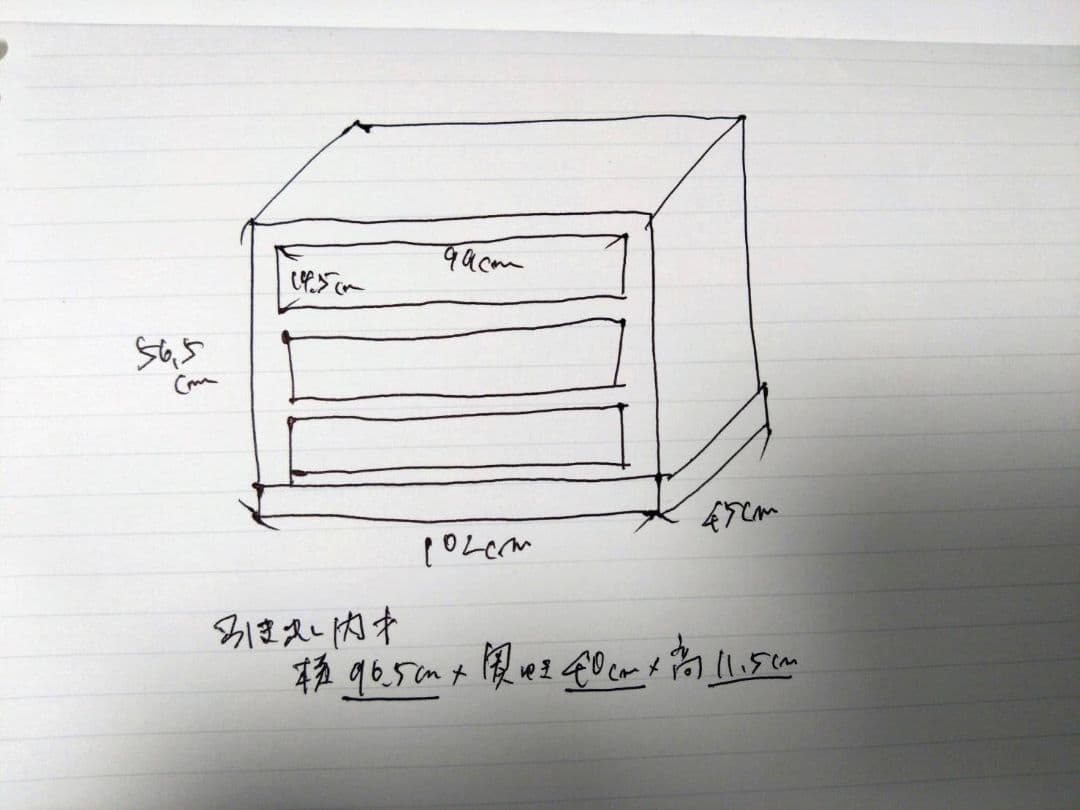 99cm
14.5cm
56.5
cm
45cm
102cm
引き出し内寸
横 96.5cm × 奥行 40cm × 高 11.5cm